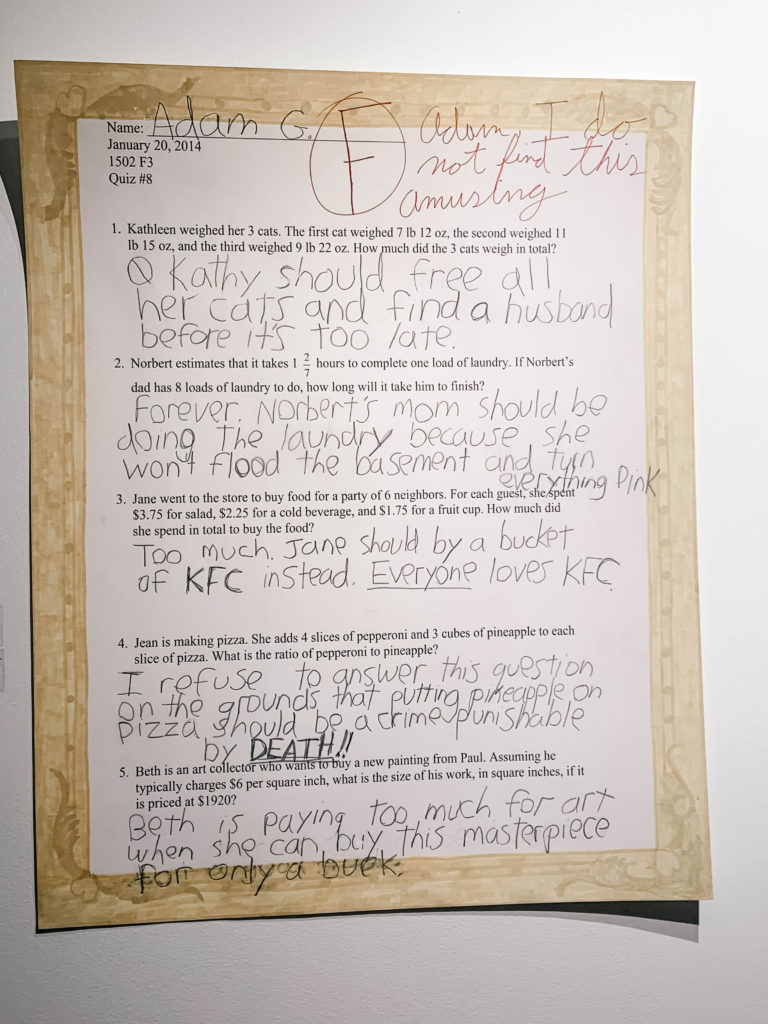 Name: Adam G.
F
Adam, I do
not find this
amusing
January 20, 2014
1502 F3
Quiz #8
1. Kathleen weighed her 3 cats. The first cat weighed 7 lb 12 oz, the second weighed 11
lb 15 oz, and the third weighed 9 lb 22 oz. How much did the 3 cats weigh in total?
Kathy should free all
her cats and find a husband
before it's too late.
2. Norbert estimates that it takes 1 2/7 hours to complete one load of laundry. If Norbert's
dad has 8 loads of laundry to do, how long will it take him to finish?
Forever. Norbert's mom should be
doing the laundry because she
won't flood the basement and turn
everything pink
3. Jane went to the store to buy food for a party of 6 neighbors. For each guest, she spent
$3.75 for salad, $2.25 for a cold beverage, and $1.75 for a fruit cup. How much did
she spend in total to buy the food?
Too much. Jane should by a bucket
of KFC instead. Everyone loves KFC.
4. Jean is making pizza. She adds 4 slices of pepperoni and 3 cubes of pineapple to each
slice of pizza. What is the ratio of pepperoni to pineapple?
I refuse to answer this question
on the grounds that putting pineapple on
pizza should be a crime punishable
by DEATH!!
5. Beth is an art collector who wants to buy a new painting from Paul. Assuming he
typically charges $6 per square inch, what is the size of his work, in square inches, if it
is priced at $1920?
Beth is paying too much for art
when she can buy this masterpiece
for only a buck.